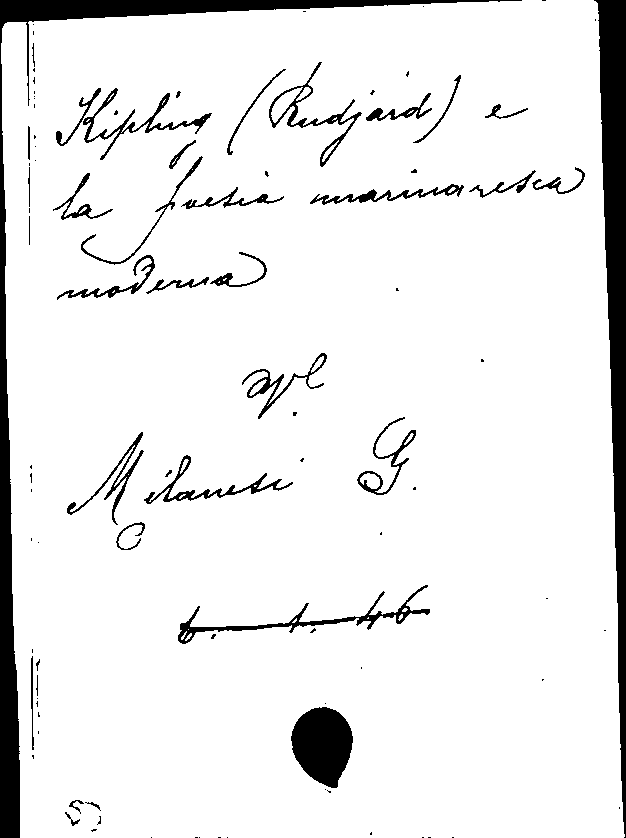 Kipling (Rudjard) e
la poesia marinaresca
moderna
Milanesi G.
6. 1. 46